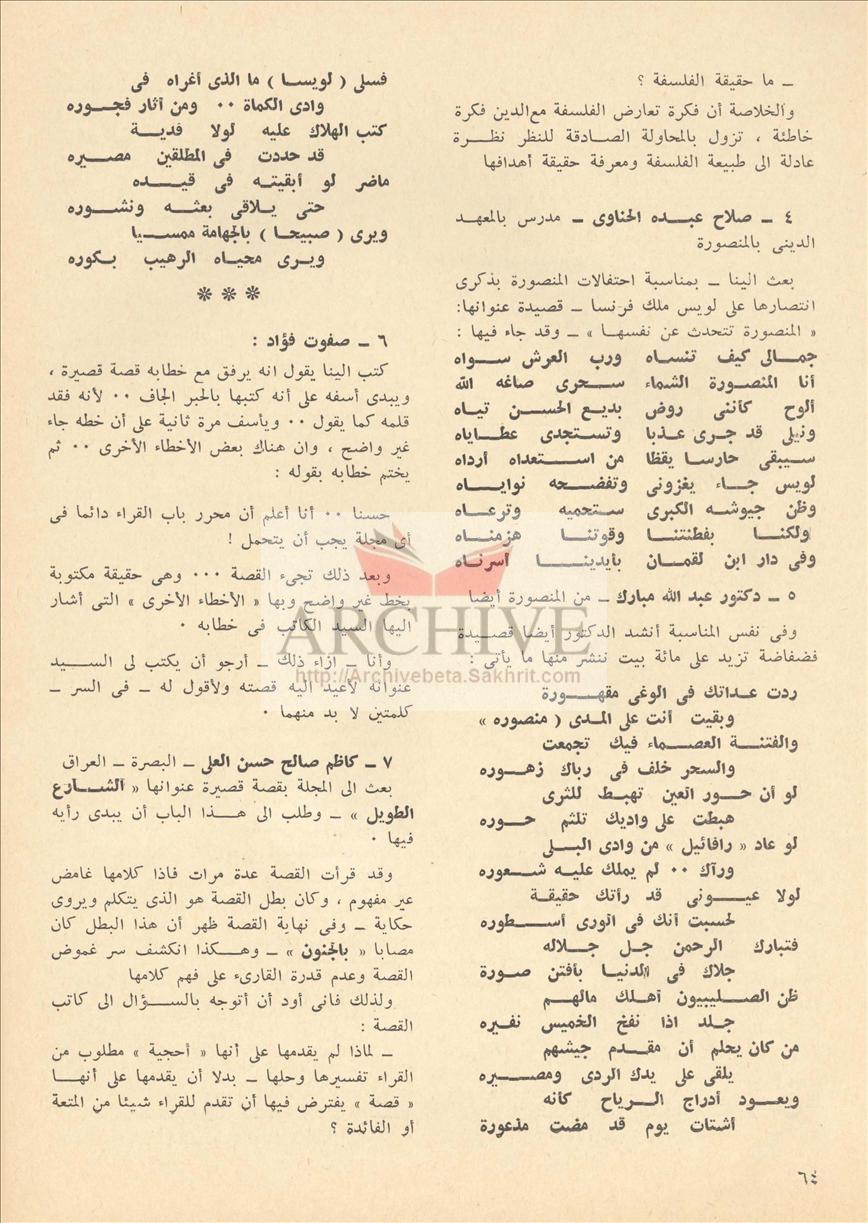 ـ ما حقيقة الفلسفة ؟
والخلاصة أن فكرة تعارض الفلسفة مع الدين فكرة
خاطئة ، تزول بالمحاولة الصادقة للنظر نظرة
عادلة الى طبيعة الفلسفة ومعرفة حقيقة أهدافها
٤ ـ صلاح عبده الحناوى ـ مدرس بالمعهد
الدينى بالمنصورة
بعث الينا ـ بمناسبة احتفالات المنصورة بذكرى
انتصارها على لويس ملك فرنسا ـ قصيدة عنوانها:
« المنصورة تتحدث عن نفسها » ـ وقد جاء فيها :
جمالى كيف تنساه ورب العرش سواه
أنا المنصورة الشماء سحرى صاغه الله
ألوح كأننى روض بديع الحسن تياه
ونيلى قد جرى عذبا وتستجدى عطاياه
سيبقى حارسا يقظا من استعداه أرداه
لويس جاء يغزونى وتفضحه نواياه
وظن جيوشه الكبرى ستحميه وترعاه
ولكنا بفطنتنا وقوتنا هزمناه
وفى دار ابن لقمان بأيدينا أسرناه
٥ ـ دكتور عبد الله مبارك ـ من المنصورة أيضا
وفى نفس المناسبة أنشد الدكتور أيضا قصيدة
فضفاضة تزيد على مائة بيت ننشر منها ما يأتى :
ردت عداتك فى الوغى مقهورة
وبقيت أنت على المدى ( منصوره »
والفتنة العصماء فيك تجمعت
والسحر خلف فى رباك زهوره
لو أن حور العين تهبط للثرى
هبطت على واديك تلثم حوره
لو عاد « رافائيل » من وادى البلى
ورآك ٠٠ لم يملك عليه شعوره
لولا عيونى قد رأتك حقيقة
لحسبت أنك فى الورى أسطوره
فتبارك الرحمن جل جلاله
جلاك فى الدنيا بأفتن صورة
ظن الصليبيون أهلك مالهم
جلد اذا نفخ الخميس نفيره
من كان يحلم أن مقدم جيشهم
يلقى على يدك الردى ومصيره
ويعود أدراج الرياح كأنه
أشتات يوم قد مضت مذعورة
فسلى ( لويسا ) ما الذى أغراه فى
وادى الكماة ٠٠ ومن أثار فجوره
كتب الهلاك عليه لولا فدية
قد حددت فى المطلقين مصيره
ماضر لو أبقيته فى قيده
حتى يلاقى بعثه ونشوره
ويرى ( صبيحا ) بالجهامة ممسيا
ويرى محياه الرهيب بكوره
***
٦ ـ صفوت فؤاد :
كتب الينا يقول انه يرفق مع خطابه قصة قصيرة ،
ويبدى أسفه على أنه كتبها بالحبر الجاف ٠٠ لأنه فقد
قلمه كما يقول ٠٠ ويأسف مرة ثانية على أن خطه جاء
غير واضح ، وان هناك بعض الأخطاء الأخرى ٠٠ ثم
يختم خطابه بقوله :
حسنا ٠٠ أنا أعلم أن محرر باب القراء دائما فى
أى مجلة يجب أن يتحمل !
وبعد ذلك تجىء القصة ٠٠٠ وهى حقيقة مكتوبة
بخط غير واضح وبها « الأخطاء الأخرى » التى أشار
اليها السيد الكاتب فى خطابه ٠
وأنا ـ ازاء ذلك ـ أرجو أن يكتب لى السيد
عنوانه لأعيد اليه قصته ولأقول له ـ فى السر ـ
كلمتين لا بد منهما ٠
٧ ـ كاظم صالح حسن العلى ـ البصرة ـ العراق
بعث الى المجلة بقصة قصيرة عنوانها « الشارع
الطويل » ـ وطلب الى هذا الباب أن يبدى رأيه
فيها ٠
وقد قرأت القصة عدة مرات فاذا كلامها غامض
غير مفهوم ، وكان بطل القصة هو الذى يتكلم ويروى
حكاية ـ وفى نهاية القصة ظهر أن هذا البطل كان
مصابا « بالجنون » ـ وهكذا انكشف سر غموض
القصة وعدم قدرة القارىء على فهم كلامها
ولذلك فانى أود أن أتوجه بالسؤال الى كاتب
القصة :
ـ لماذا لم يقدمها على أنها « أحجية » مطلوب من
القراء تفسيرها وحلها ـ بدلا أن يقدمها على أنها
« قصة » يفترض فيها أن تقدم للقراء شيئا من المتعة
أو الفائدة ؟
ARCHIVE
http://Archivebeta.Sakhrit.com
٦٤